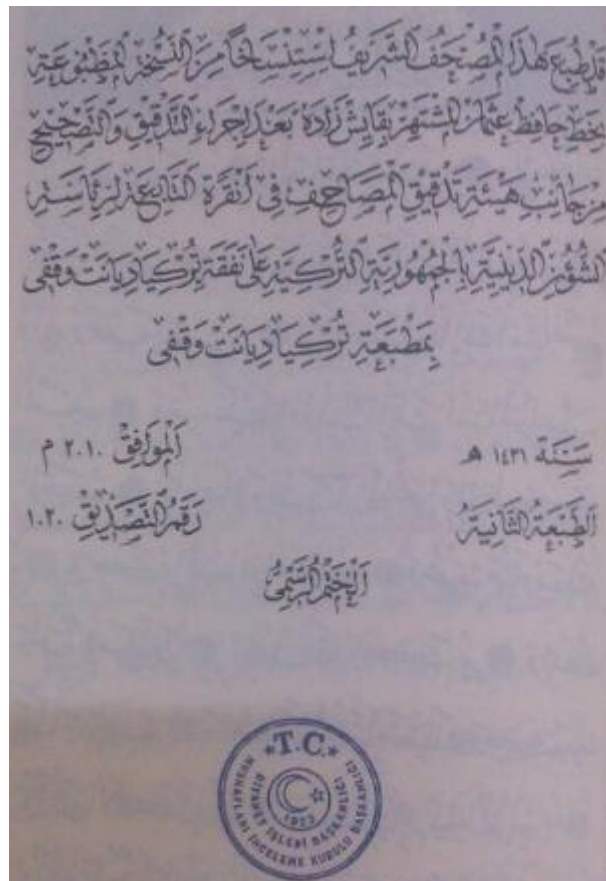 قَدْ طُبِعَ هٰذَا الْمُصْحَفُ الشَّرِيفُ اِسْتِنْسَاخًا مِنَ النُّسْخَةِ الْمَطْبُوعَةِ
بِخَطِّ حَافِظْ عُثْمَانَ الْمُشْتَهِرِ بِقَايِشْ زَادَهْ بَعْدَ اِجْرَاءِ التَّدْقِيقِ وَالتَّصْحِيحِ
مِنْ جَانِبِ هَيْئَةِ تَدْقِيقِ الْمَصَاحِفِ فِى اَنْقَرَةَ التَّابِعَةِ لِرِئَاسَةِ
الشُّؤُنِ الدِّينِيَّةِ بِالْجُمْهُورِيَّةِ التُّرْكِيَّةِ عَلَى نَفَقَةِ تُرْكِيَا دِيَانَتْ وَقْفِى
بِمَطْبَعَةِ تُرْكِيَا دِيَانَتْ وَقْفِى
سَنَة ١٤٣١ هـ اَلْمُوَافِقْ ٢٠١٠ م
اَلطَّبْعَةُ الثَّانِيَةُ رَقْمُ التَّصْدِيقِ ١٠٢٠
اَلْخَتْمُ الرَّسْمِىُّ
T.C.
DİYANET İŞLERİ BAŞKANLIĞI
MUSHAFLARI İNCELEME KURULU BAŞKANLIĞI
1923